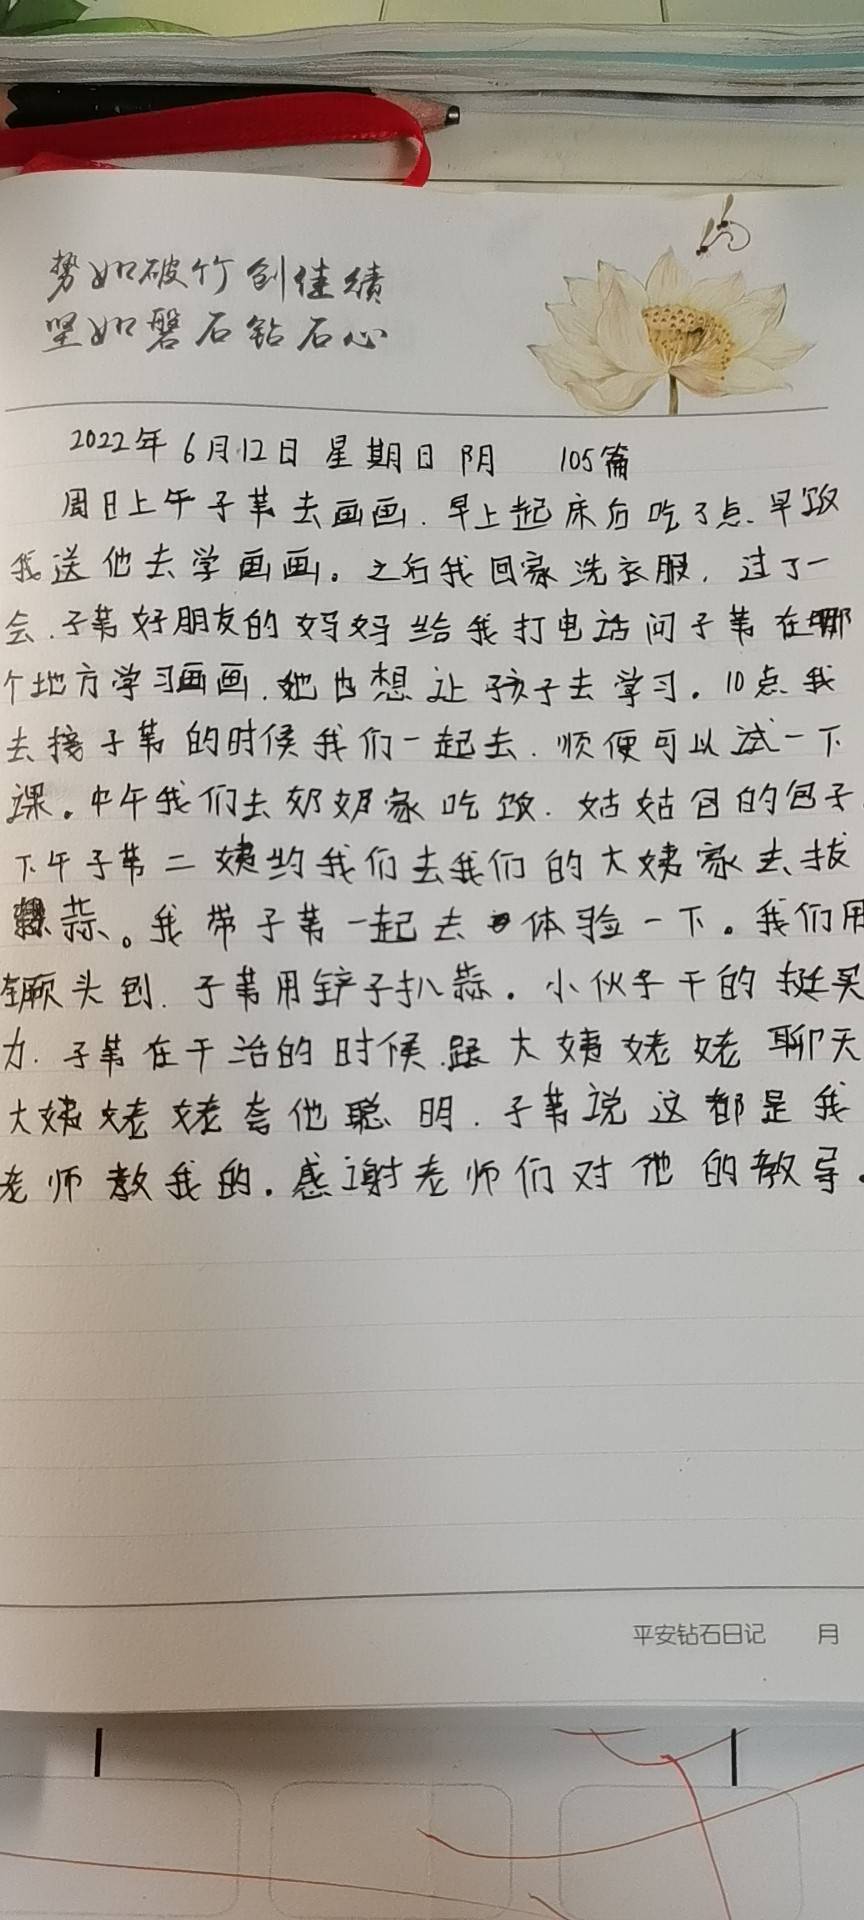 势如破竹创佳绩
坚如磐石钻石心
2022年6月12日 星期日 阴 105篇
周日上午子苇去画画.早上起床后吃了点.早饭
我送他去学画画。之后我回家洗衣服，过了一
会.子苇好朋友的妈妈给我打电话问子苇在哪
个地方学习画画.她也想让孩子去学习。10点我
去接子苇的时候我们一起去.顺便可以试一下
课。中午我们去奶奶家吃饭.姑姑包的包子
下午子苇二姨约我们去我们的大姨家去拔
蒜。我带子苇一起去体验一下。我们用
镢头刨.子苇用铲子扒蒜。小伙子干的挺买
力.子苇在干活的时候.跟大姨姥姥聊天
大姨姥姥夸他聪明.子苇说这都是我
老师教我的。感谢老师们对他的教导。
平安钻石日记 月